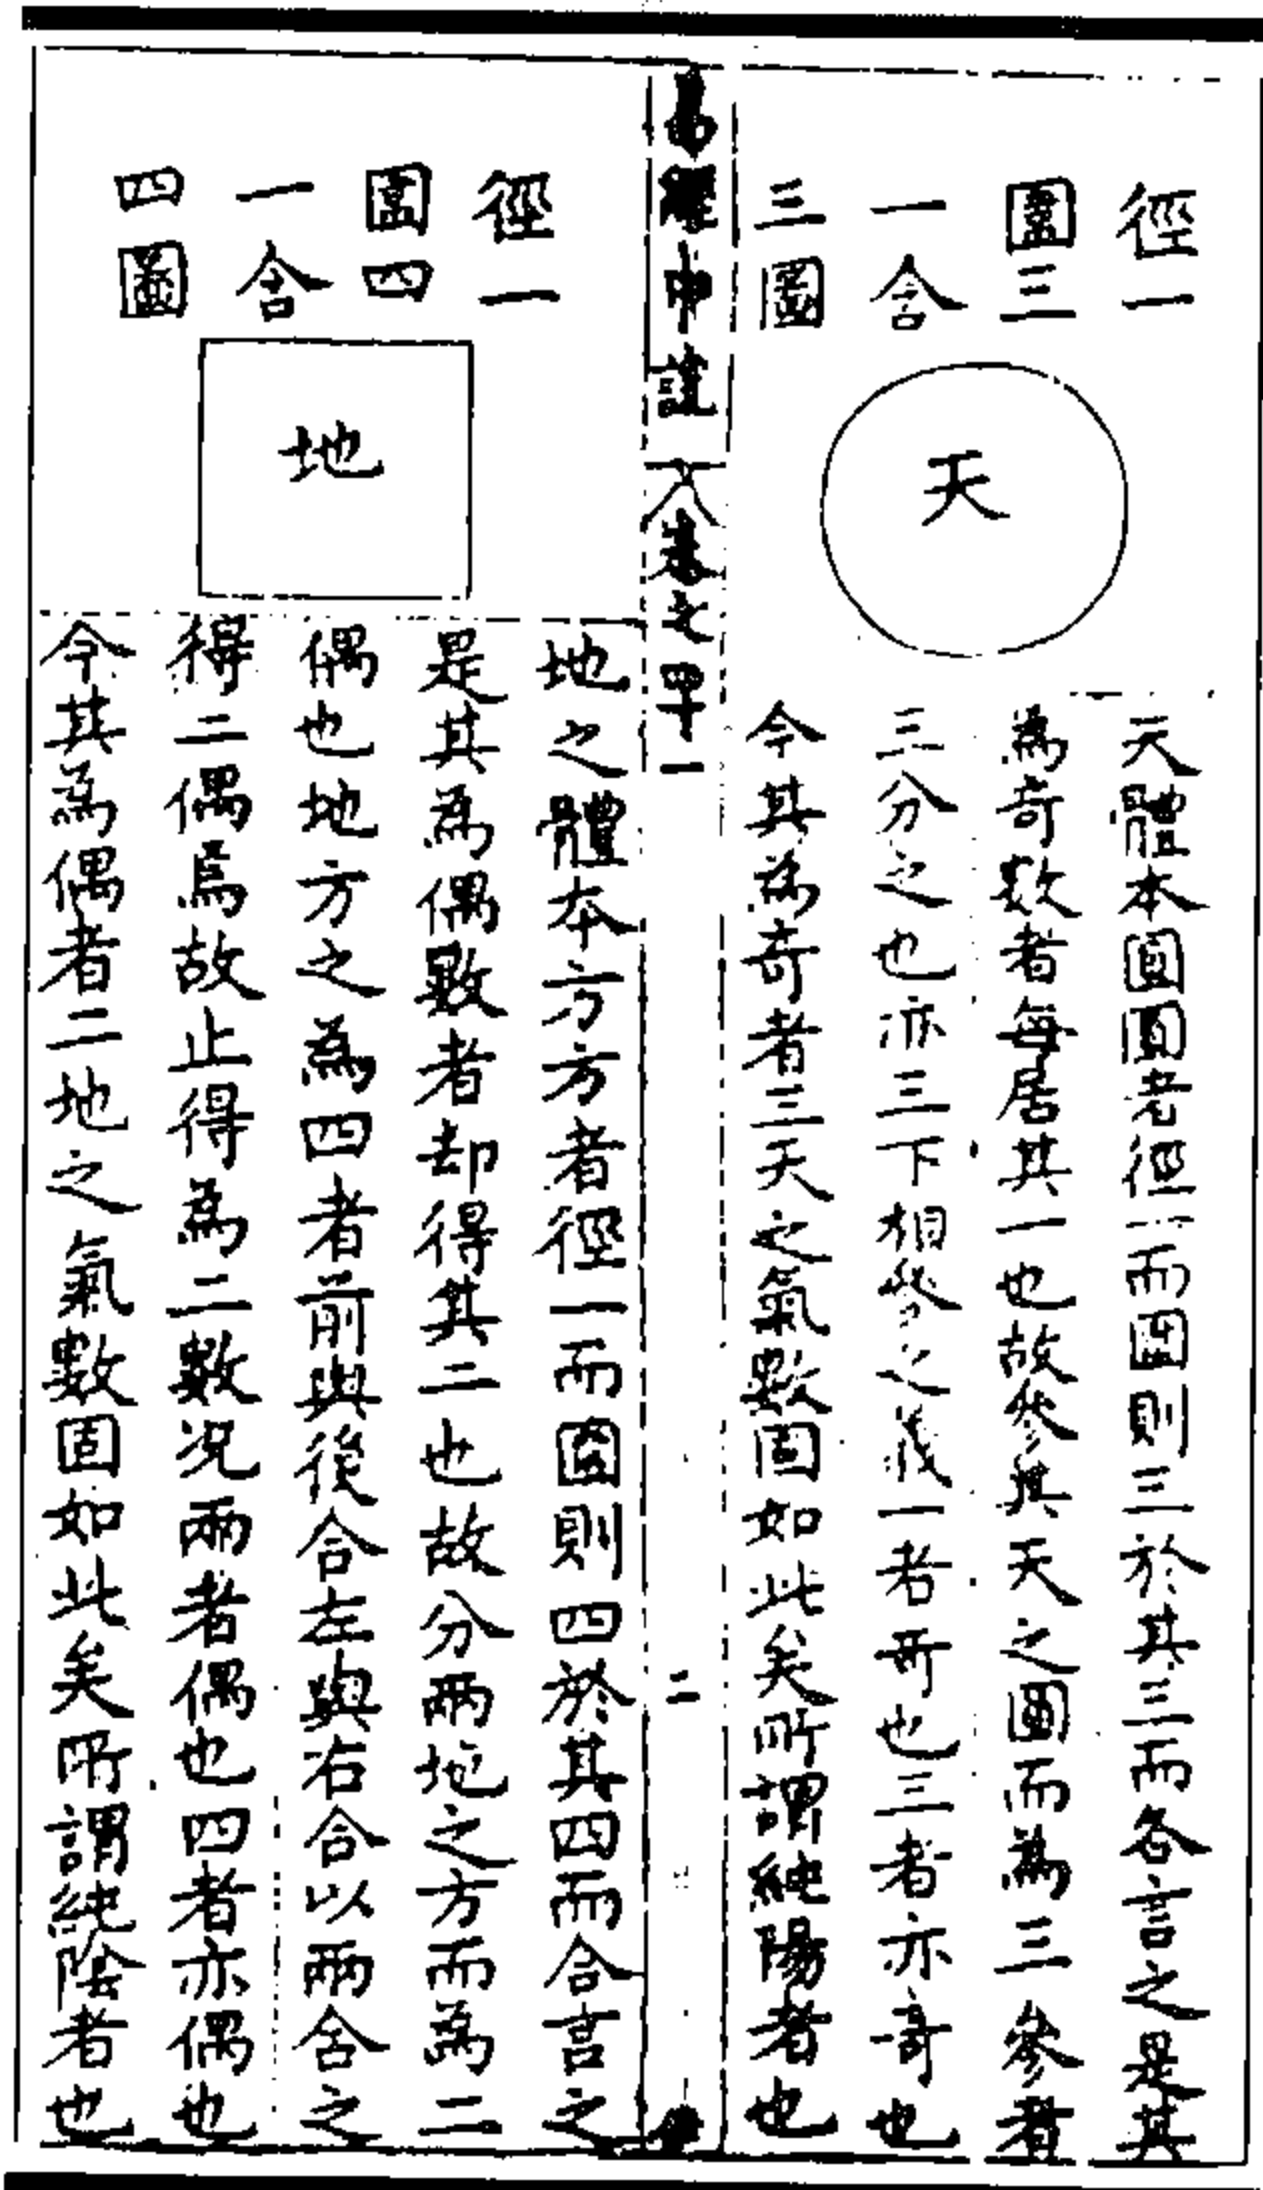 徑一
圍三
一含
三圖
天
天體本圓圓者徑一而圍則三於其三而各言之是其
為奇數者每居其一也故參其天之圓而為三參者
三分之也亦三下相參之義一者奇也三者亦奇也
今其為奇者三天之氣數固如此矣所謂純陽者也
易經中說
卷之四十一
二
徑一
圍四
一含
四圖
地
地之體本方方者徑一而圍則四於其四而合言之
是其為偶數者却得其二也故分兩地之方而為二
偶也地方之為四者前與後合左與右合以兩含之
得二偶焉故止得為二數况兩者偶也四者亦偶也
今其為偶者二地之氣數固如此矣所謂純陰者也